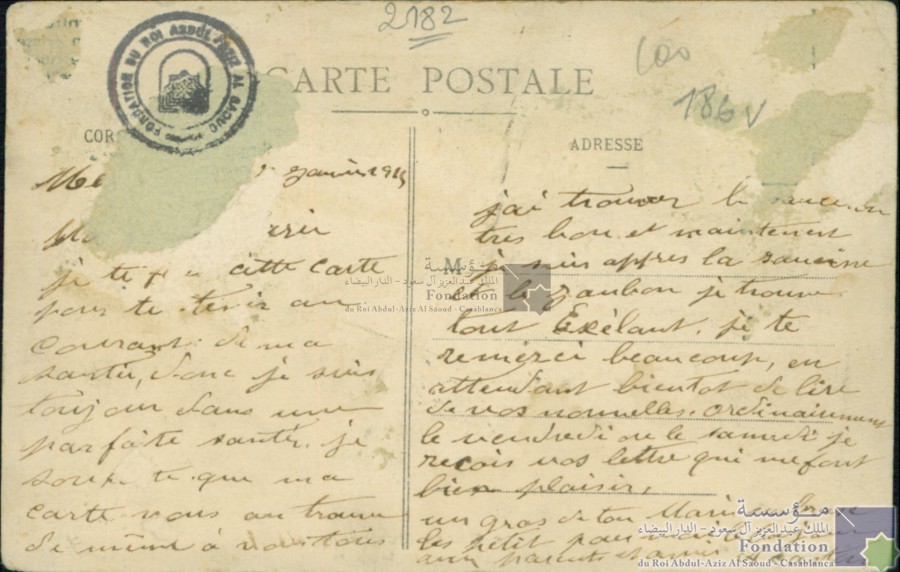 2182
100
186 V
FONDATION DU ROI ABDUL AZIZ AL SAOUD
CARTE POSTALE
COR
ADRESSE
M
janvier 191
je te cette carte
pour te tenir au
courant de ma
santée, donc je suis
toujour dans une
parfaite santée. je
te que ma
carte vous en trouve
de même à vous tous
j'ai trouver le
tres bon et maintenent
je suis appres la saucisse
et le janbon je trouve
tout Exélant. je te
remerci beaucoup, en
attendant bientot de lire
de vos nouvelles. ordinairement
le vendredi ou le samedi je
recois vos lettre qui me font
bien plaisir,
un gros de ton Mari
les petit pour
aux parents et amis
مؤسسة
الملك عبدالعزيز آل سعود - الدار البيضاء
Fondation
du Roi Abdul-Aziz Al Saoud - Casablanca
مؤسسة
الملك عبدالعزيز آل سعود - الدار البيضاء
Fondation
du Roi Abdul-Aziz Al Saoud - Casablanca